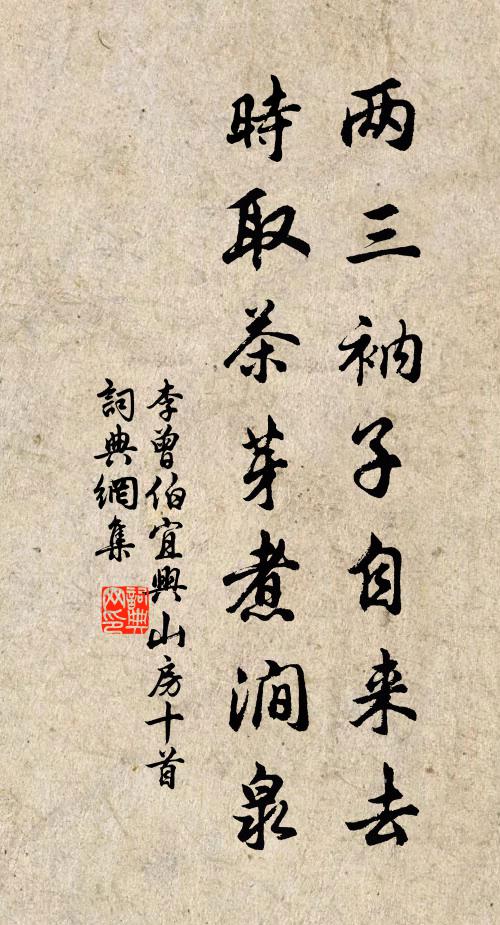 两三衲子自来去
時取茶芽煮澗泉
李曾伯宜興山房十首
詞典網集
詞典
网印